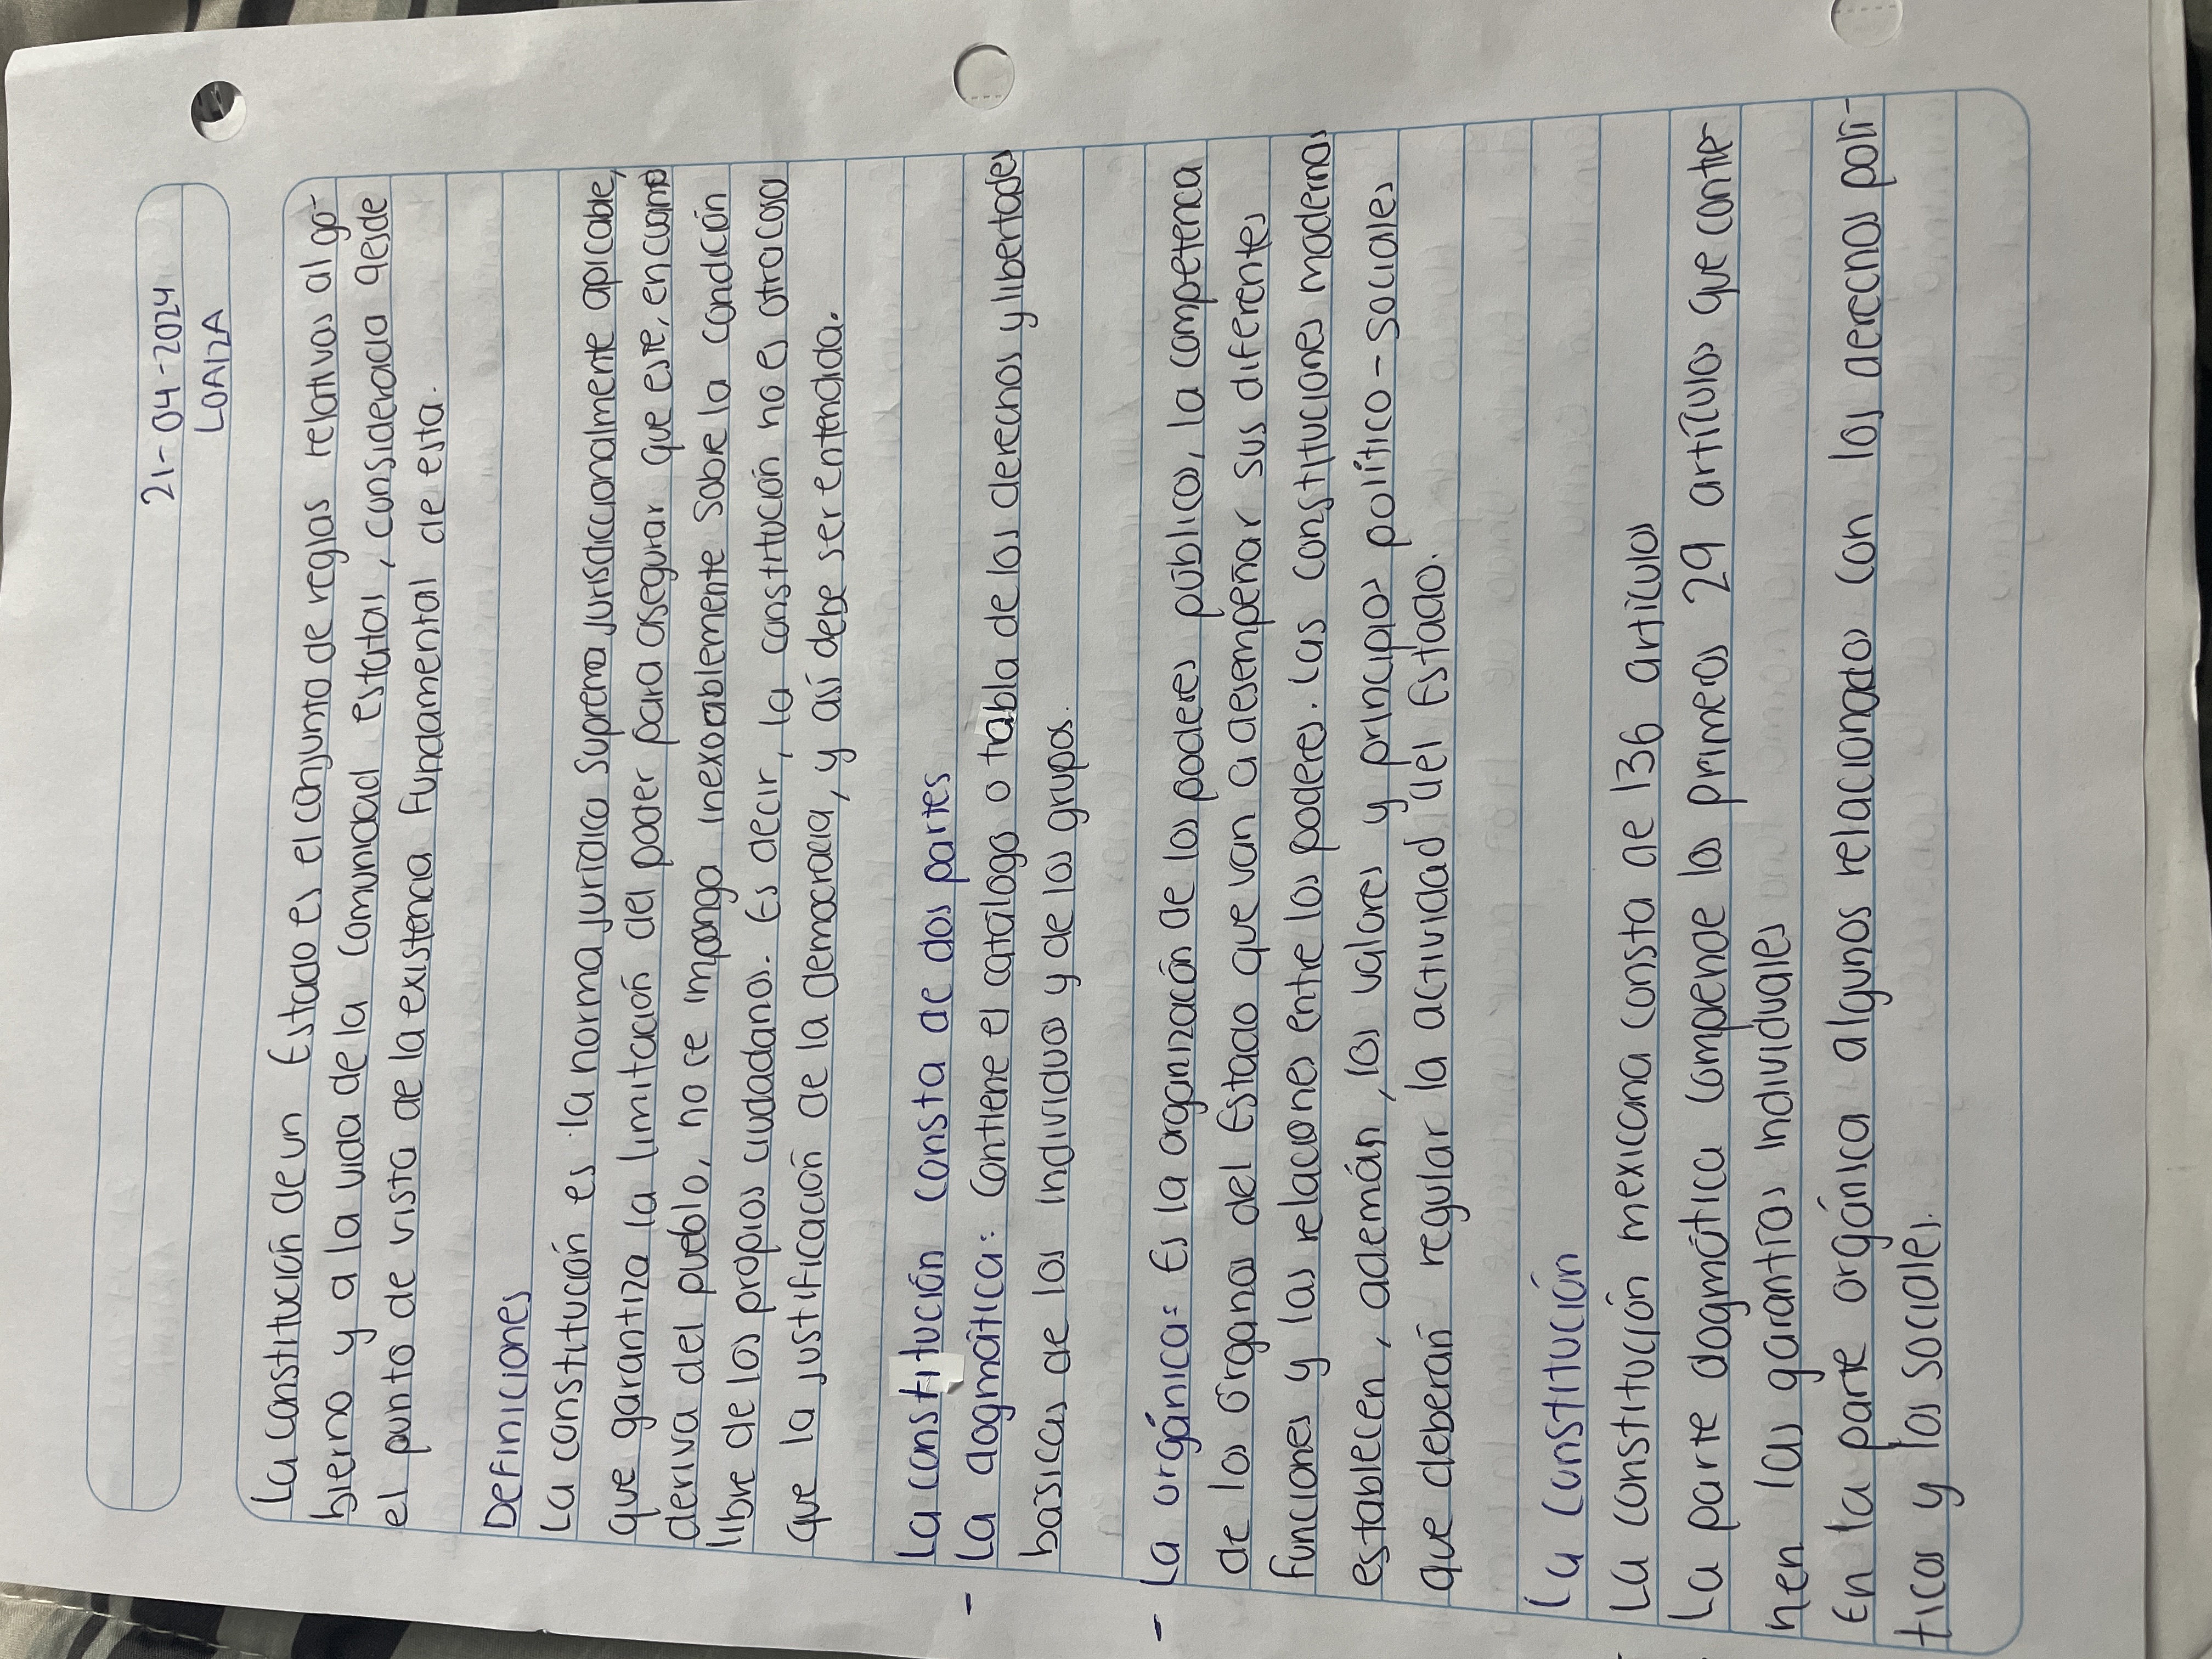 21-04-2024
LOAIZA
La constitución de un Estado es el conjunto de reglas relativas al go-
bierno y a la vida de la comunidad estatal, considerada desde
el punto de vista de la existencia fundamental de esta.
Definiciones
La constitución es la norma jurídica suprema jurisdiccionalmente aplicable,
que garantiza la limitación del poder para asegurar que este, en cuanto
deriva del pueblo, no se imponga inexorablemente sobre la condición
libre de los propios ciudadanos. Es decir, la constitución no es otra cosa
que la justificación de la democracia, y así debe ser entendida.
La constitución consta de dos partes
- La dogmática: Contiene el catálogo o tabla de los derechos y libertades
básicas de los individuos y de los grupos.
- La orgánica: Es la organización de los poderes públicos, la competencia
de los órganos del Estado que van a desempeñar sus diferentes
funciones y las relaciones entre los poderes. Las constituciones modernas
establecen, además, los valores y principios político-sociales
que deberán regular la actividad del Estado.
La Constitución
La constitución mexicana consta de 136 artículos
La parte dogmática compende los primeros 29 artículos que contie-
nen las garantías individuales
En la parte orgánica algunos relacionados con los derechos polí-
ticos y los sociales.